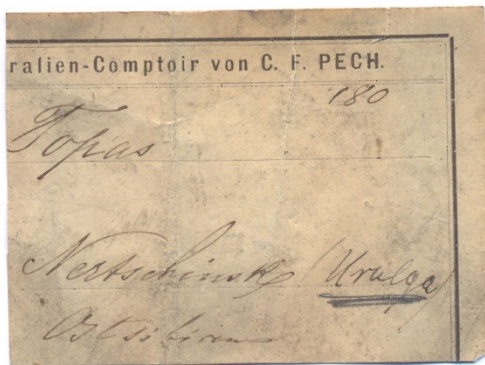 ralien-Comptoir von C. F. PECH.
180
Topas
Nertschinsk (Urulga)
Ostsibirien